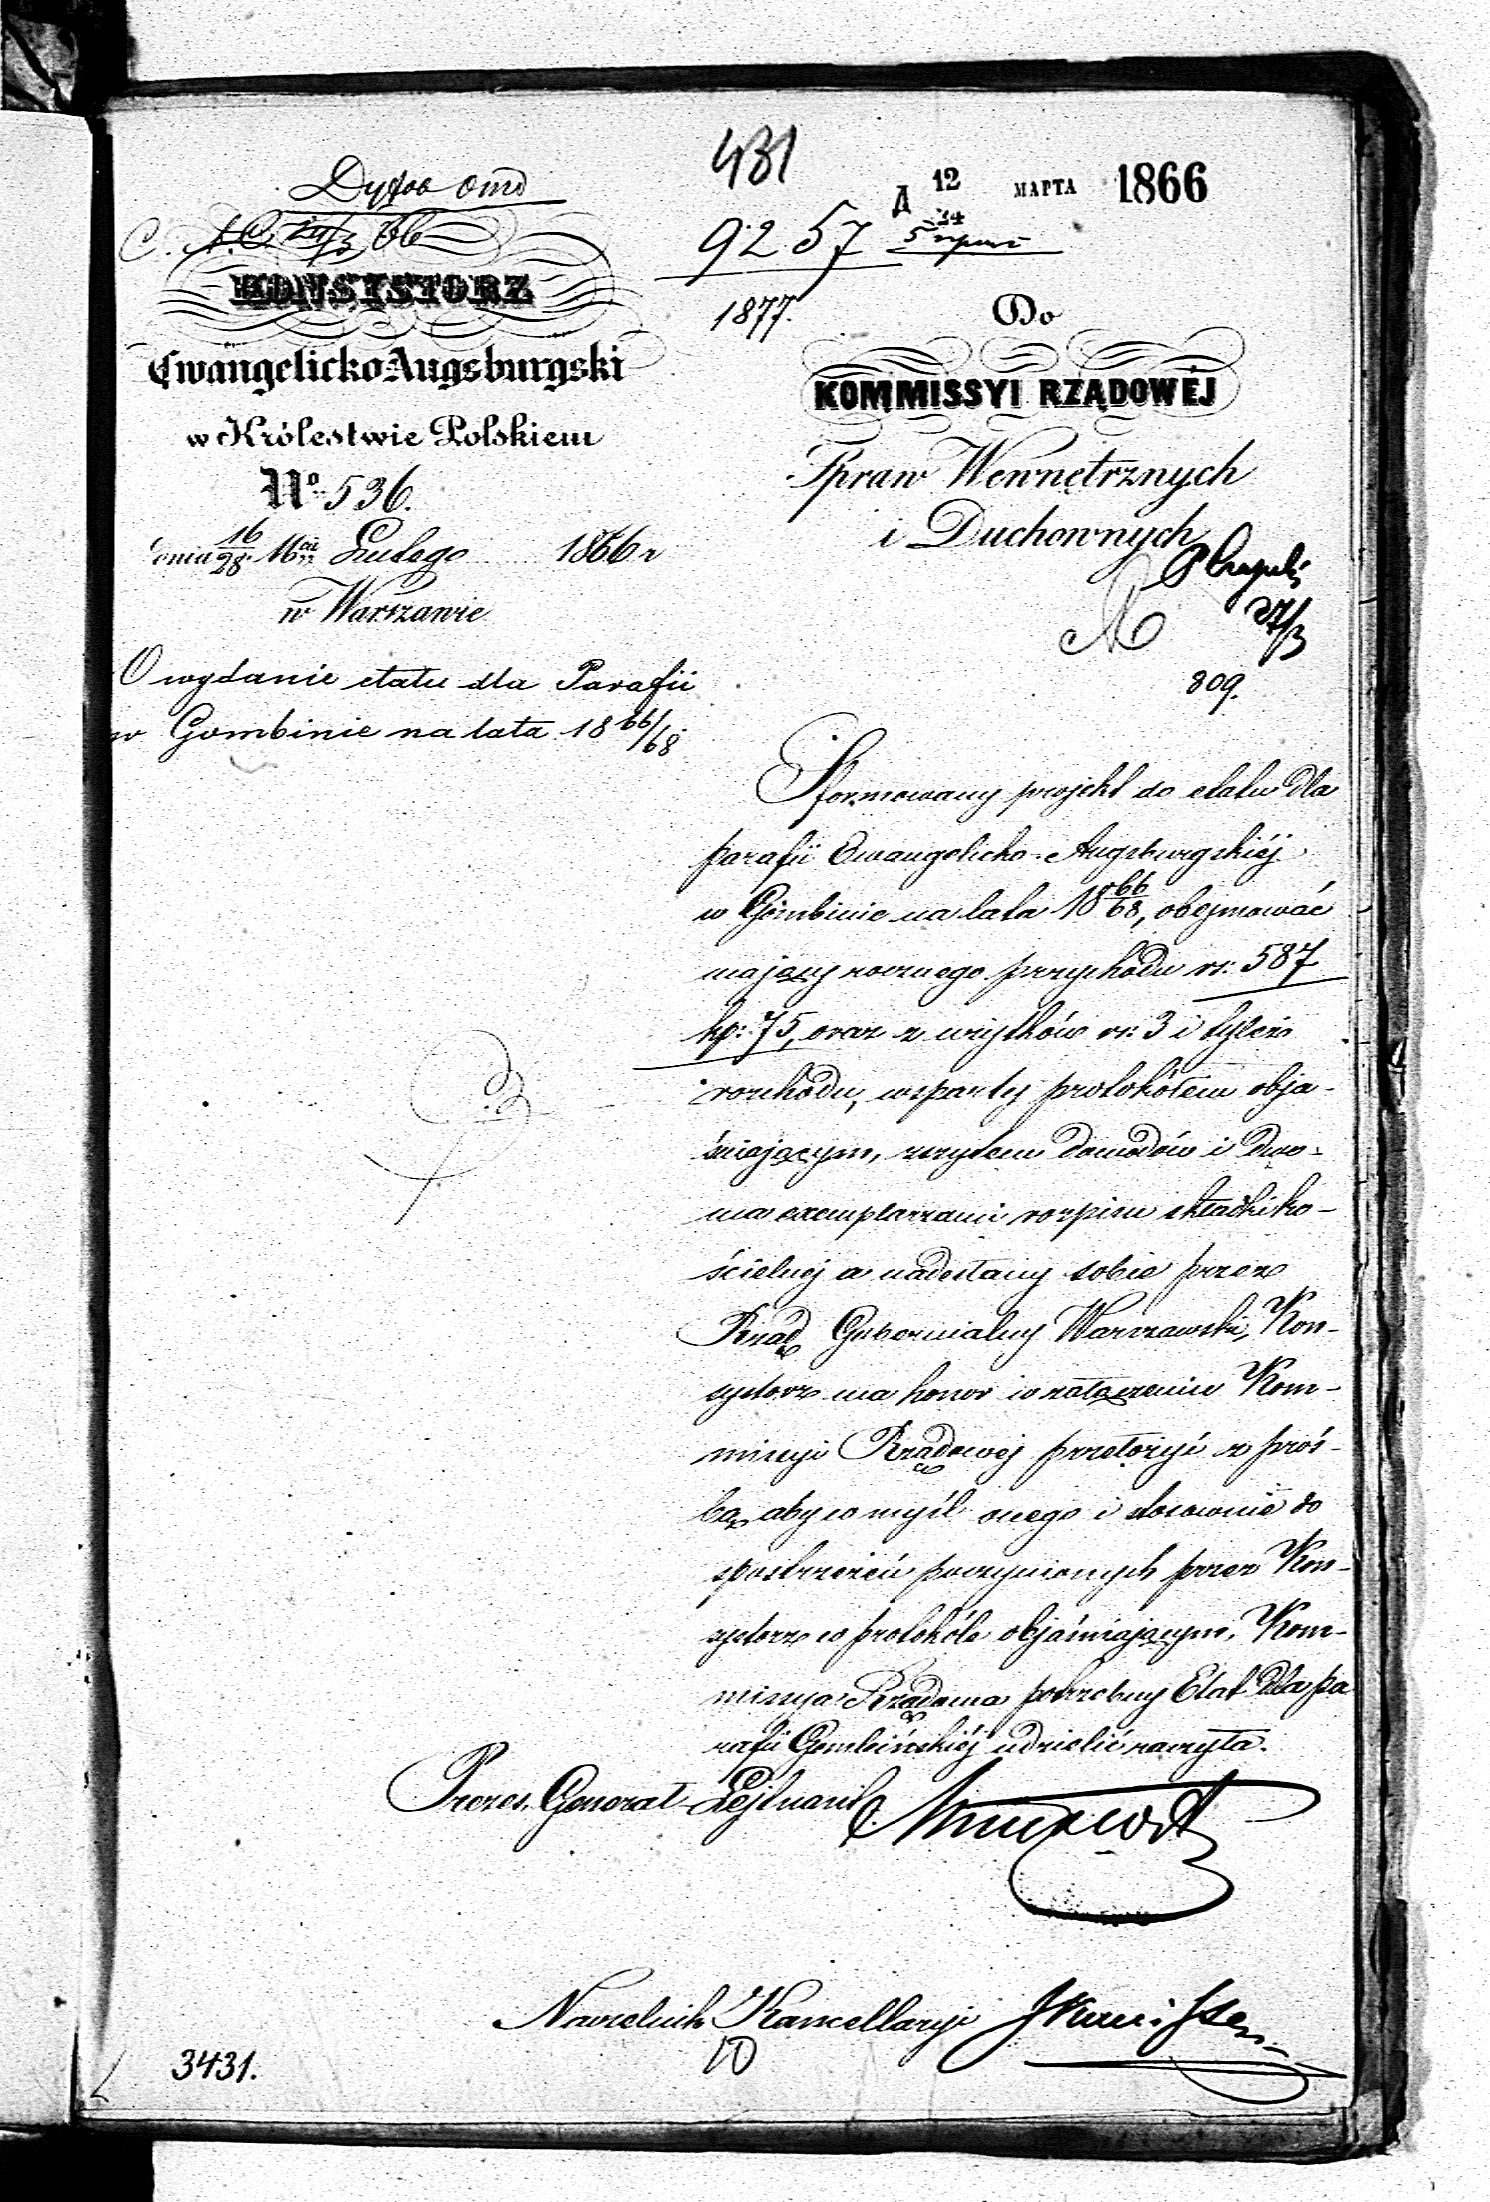 431
12 МАРТА 1866
24
9257
1877.
KONSYSTORZ
Ewangelicko-Augsburgski
w Królestwie Polskiem
No 536.
dnia 16/28 Lutego 1866 r
w Warszawie
O wydanie etatu dla Parafii
w Gombinie na lata 1866/68
Do
KOMMISSYI RZĄDOWÉJ
Spraw Wewnętrznych
i Duchownych
27/3
809.
Sformowany projekt do etatu dla
parafii Ewangelicko-Augsburgskiéj
w Gombinie na lata 1866/68, obejmować
mający rocznego przychodu rs: 587
kp: 75, oraz z wsiewków rs: 3 i tyleż
rozchodu, wsparty protokółem obja-
śniającym, zszytem dowodów i dwo-
ma exemplarzami rozpisu składki ko-
ścielnej a nadesłany sobie przez
Rząd Gubernialny Warszawski, Kon-
systorz ma honor w załączeniu Kom-
missyi Rządowej przełożyć z proś-
bą, aby w myśl onego i stosownie do
spostrzeżeń poczynionych przez Kon-
systorz w protokóle objaśniającym, Kom-
missya Rządowa potrzebny Etat dla pa
rafii Gombińskiéj udzielić raczyła.
Prezes, Generał-Lejtnant
Naczelnik Kancellaryi
3431.